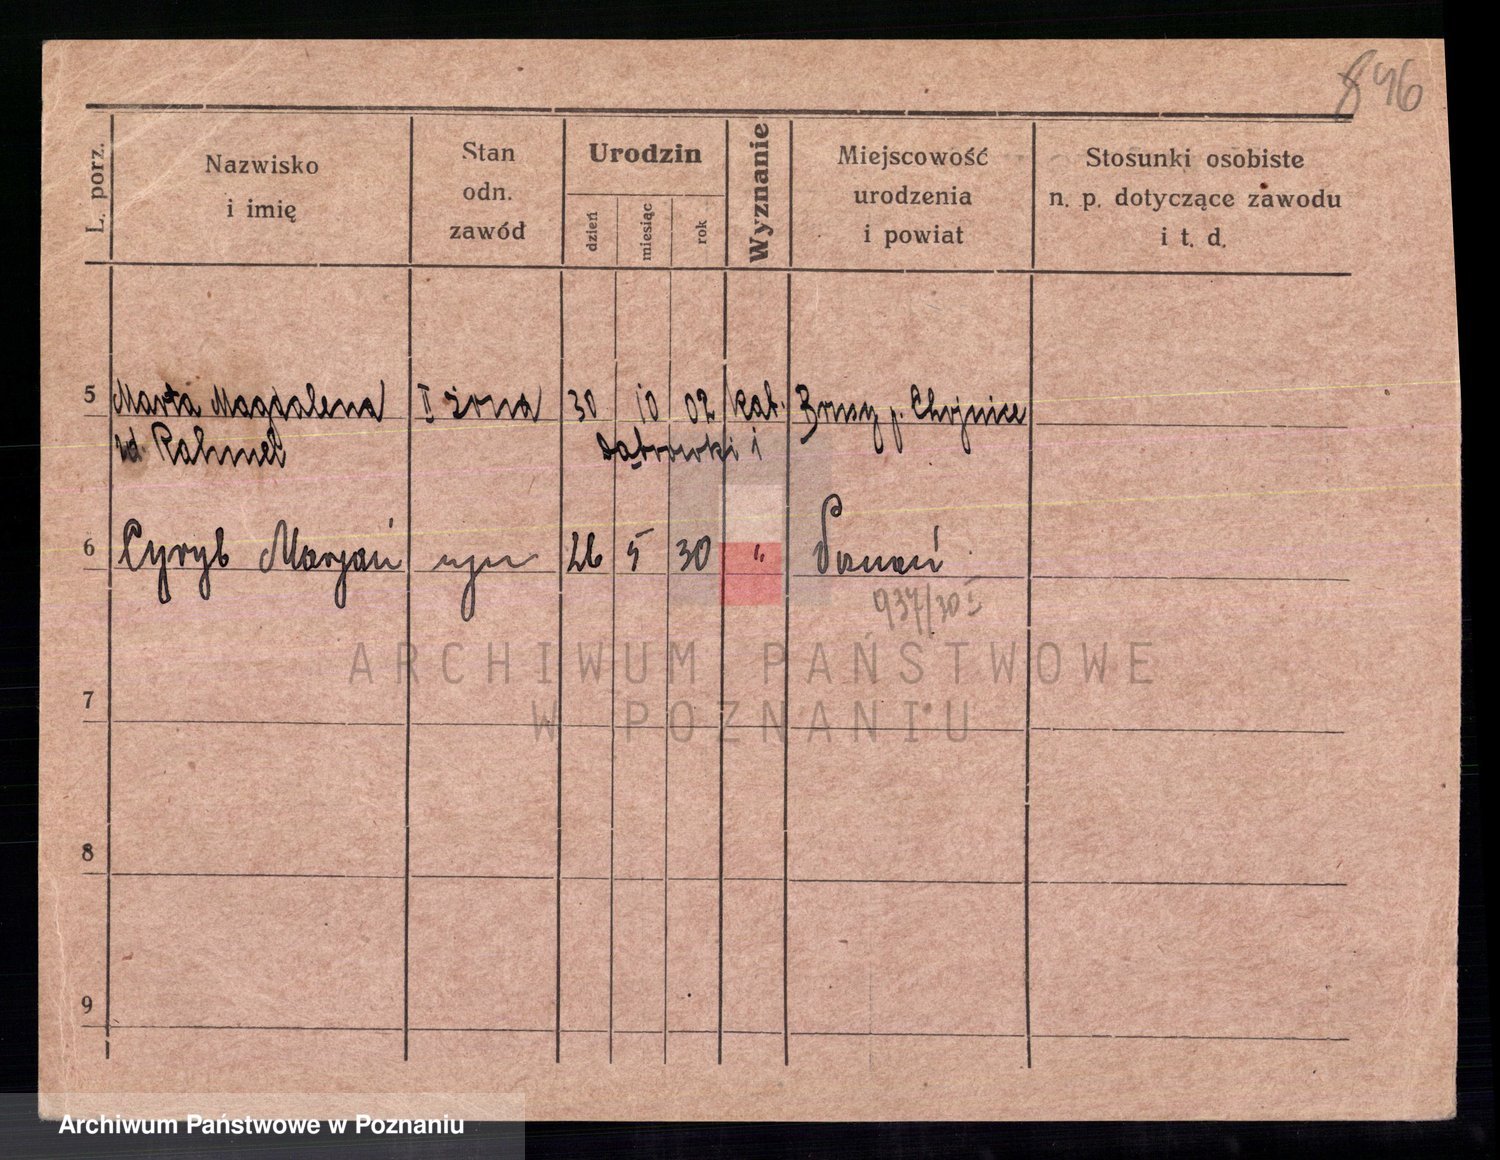 846
L. porz.
Nazwisko i imię
Stan odn. zawód
Urodzin
dzień
miesiąc
rok
Wyznanie
Miejscowość urodzenia i powiat
Stosunki osobiste n. p. dotyczące zawodu i t. d.
5 Marta Magdalena II żona 30 10 02 kat. Brusy p. Chojnice
zd. Rahmel
6 Cyryl Marjan syn 26 5 30 " Poznań
937/30
7
8
9
ARCHIWUM PAŃSTWOWE
W POZNANIU
Archiwum Państwowe w Poznaniu